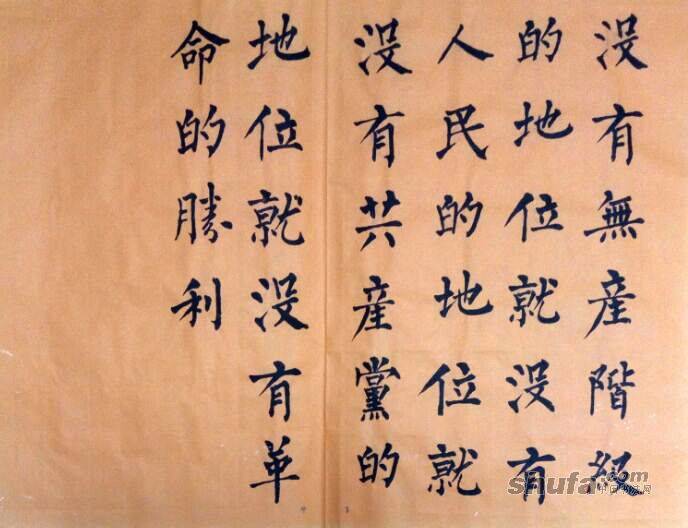 没有無產階級
的地位就没有
人民的地位就
没有共產黨的
地位就没有革
命的勝利
shufa.com
中国书法网